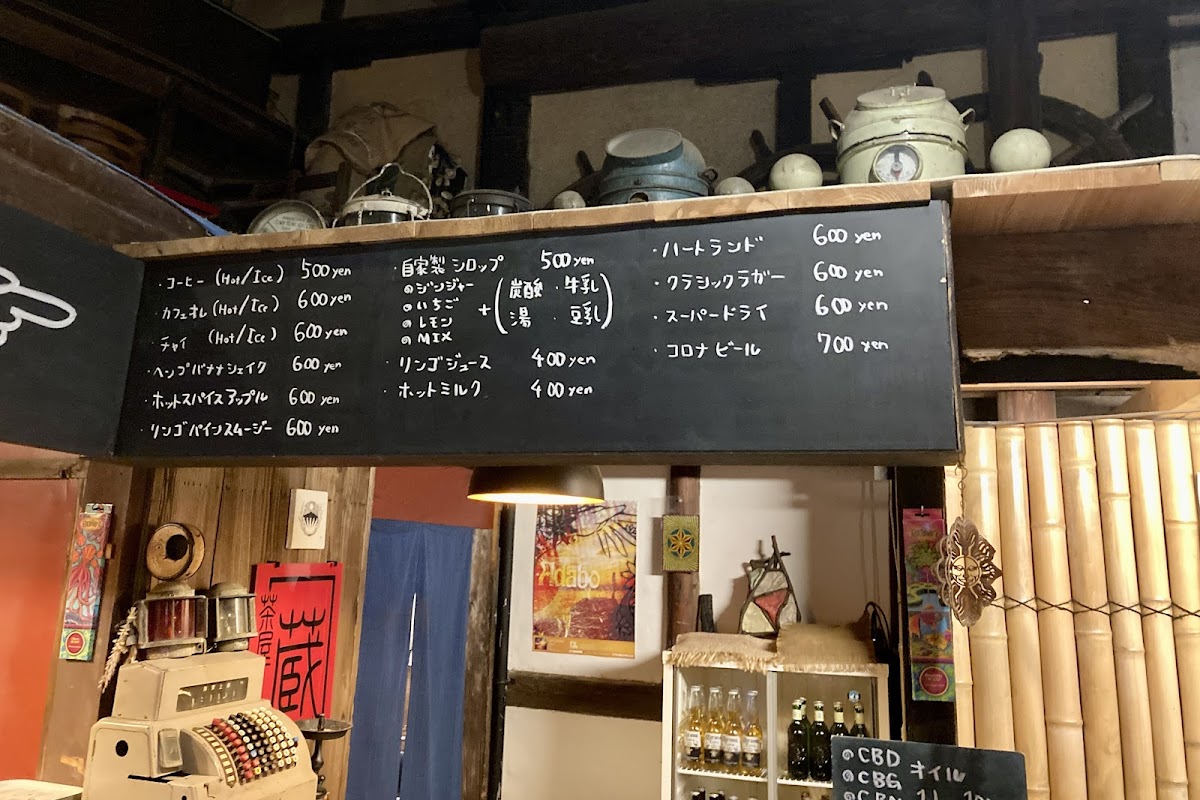 ・コーヒー (Hot/Ice) 500 yen
・カフェオレ (Hot/Ice) 600 yen
・チャイ (Hot/Ice) 600 yen
・ヘンプバナナシェイク 600 yen
・ホットスパイスアップル 600 yen
・リンゴパインスムージー 600 yen
・自家製シロップ 500 yen
◎ジンジャー
◎いちご
◎レモン
◎MIX
+(炭酸・牛乳
湯・豆乳)
・リンゴジュース 400 yen
・ホットミルク 400 yen
・ハートランド 600 yen
・クラシックラガー 600 yen
・スーパードライ 600 yen
・コロナビール 700 yen
茶屋
蔵
Adabo
◎CBD オイル
◎CBG